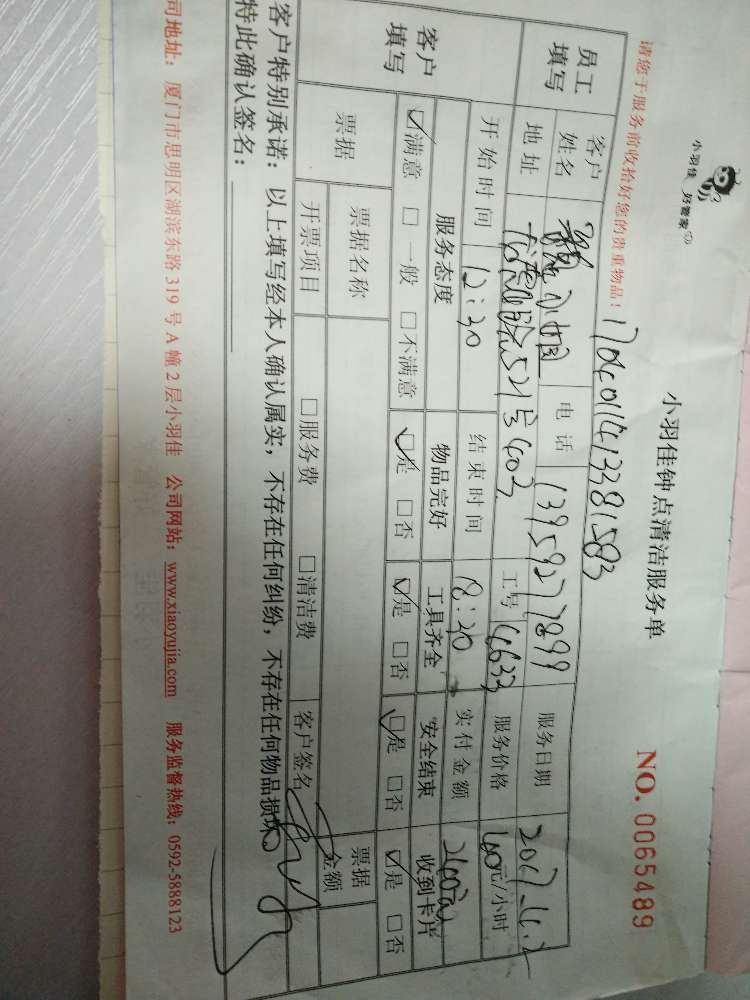 小羽佳 好管家
小羽佳钟点清洁服务单
NO. 0065489
请您于服务前收拾好您的贵重物品！ 1704011413381583
员工填写 客户姓名 小姐 电话 13959277899 服务日期 2017.
地址 521号403 工号 4633 服务价格 40元/小时
开始时间 12:30 结束时间 18:30 实付金额 240元
客户填写 服务态度 物品完好 工具齐全 安全结束 收到卡片
☑满意 □一般 □不满意 ☑是 □否 ☑是 □否 ☑是 □否 ☑是 □否
票据 票据名称 票据金额
开票项目 □服务费 □清洁费 客户签名
客户特别承诺：以上填写经本人确认属实，不存在任何纠纷，不存在任何物品损坏。
特此确认签名：
司地址：厦门市思明区湖滨东路 319 号 A 幢 2 层小羽佳 公司网站：www.xiaoyujia.com 服务监督热线：0592-5888123